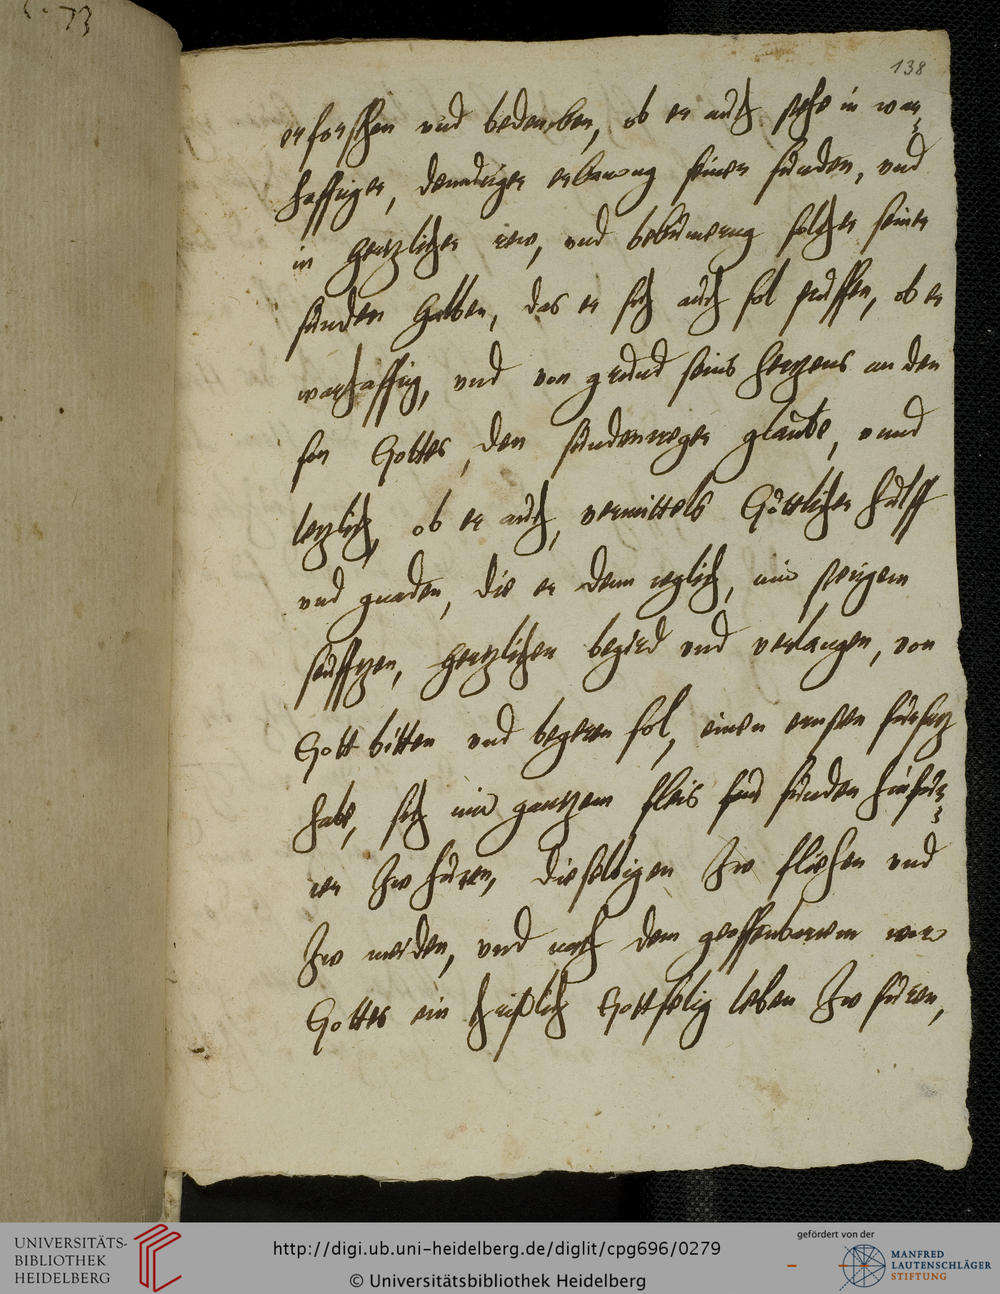 138
erforschen und bedencken, ob er auch stehe in war-
hafftiger, demutiger erkantnug seiner sünden, und
in hertzlicher rew, und bekümernug solcher seiner
sünden halben, das er sich auch sol prüffen, ob er
warhafftig, und von grund seins hertzens an den
son Gottes, den sündentreger glaube, unnd
letzlich, ob er auch, vermittels Göttlicher hülff
und gnaden, die er denn teglich, mit stetigem
seufftzen, hertzlichen begird und verlangen, von
Gott bitten und begeren sol, einen ernsten fürsatz
habe, sich mit gantzem fleis für sünden hinfür-
ter zw hüten, dieselbigen zw fliehen und
zw meiden, und nach dem geoffenbartem wort
Gottes ein christlich Gottselig leben zw füren,
UNIVERSITÄTS-
BIBLIOTHEK
HEIDELBERG
http://digi.ub.uni-heidelberg.de/diglit/cpg696/0279
© Universitätsbibliothek Heidelberg
gefördert von der
MANFRED
LAUTENSCHLÄGER
STIFTUNG